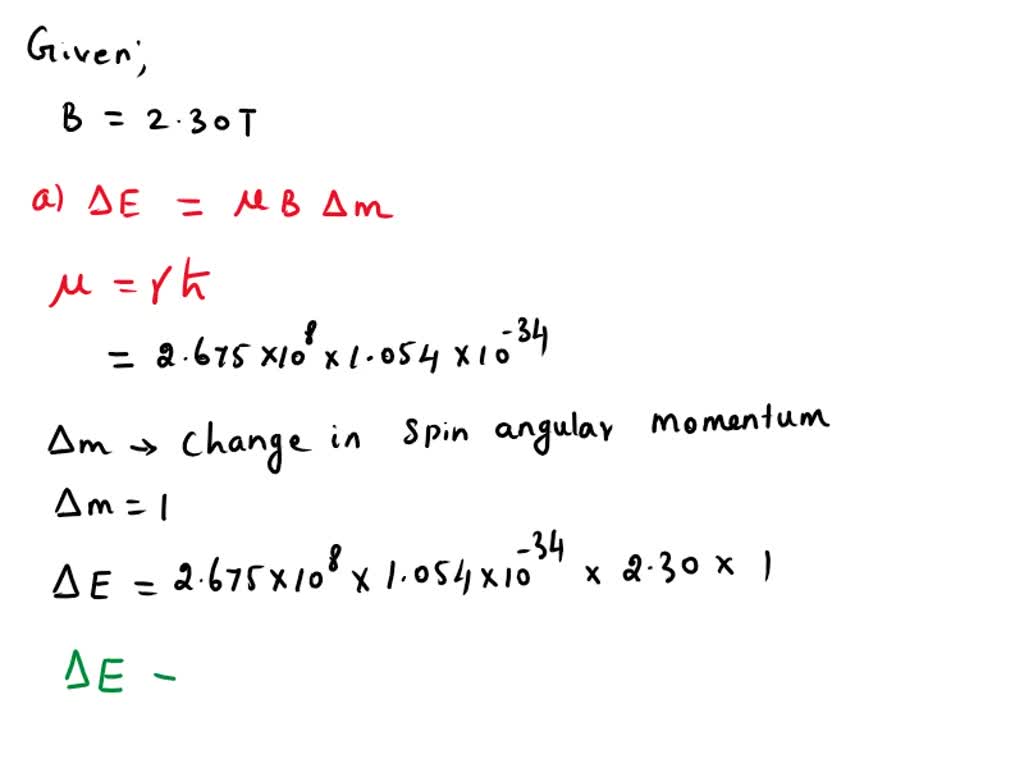 Given;
B = 2.30T
a) ΔE = μ B Δm
μ = γħ
= 2.675 × 10⁸ × 1.054 × 10⁻³⁴
Δm → Change in Spin angular momentum
Δm = 1
ΔE = 2.675 × 10⁸ × 1.054 × 10⁻³⁴ × 2.30 × 1
ΔE -